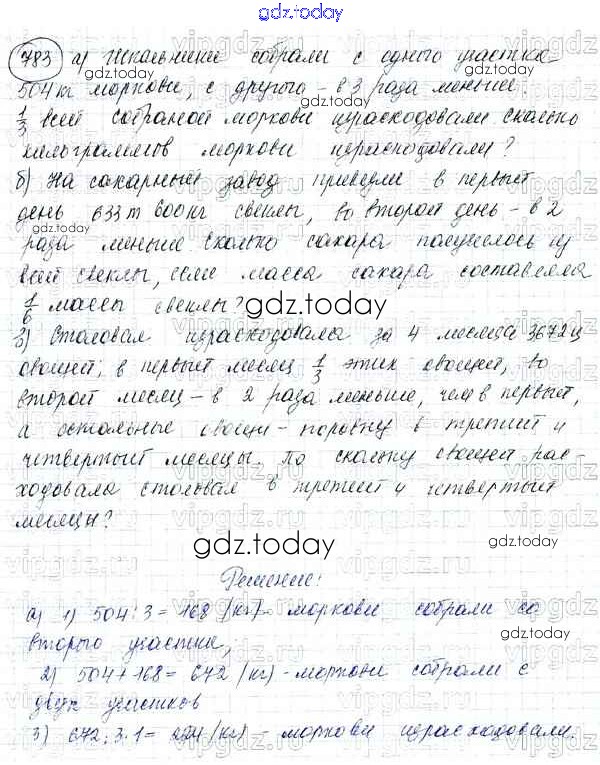 gdz.today
783 а) Школьники собрали с одного участка
504 кг моркови, с другого - в 3 раза меньше.
1/3 всей собраной моркови израсходовали сколько
килограммов моркови израсходовали?
б) На сахарный завод привезли в первый
день 633 т 600 кг свеклы, во второй день - в 2
раза меньше. Сколько сахара получилось из
всей свеклы, если масса сахара составляла
1/6 массы свеклы?
в) Столовая израсходовала за 4 месяца 3672 ц
овощей; в первый месяц 1/3 этих овощей, во
второй месяц - в 2 раза меньше, чем в первый,
а остальные овощи - поровну в третий и
четвертый месяцы. По сколько овощей рас-
ходовала столовая в третий и четвертый
месяцы?
gdz.today
Решение:
а) 1) 504 : 3 = 168 (кг) - моркови собрали со
второго участка;
2) 504 + 168 = 672 (кг) - моркови собрали с
двух участков
3) 672 : 3 · 1 = 224 (кг) - моркови израсходовали.